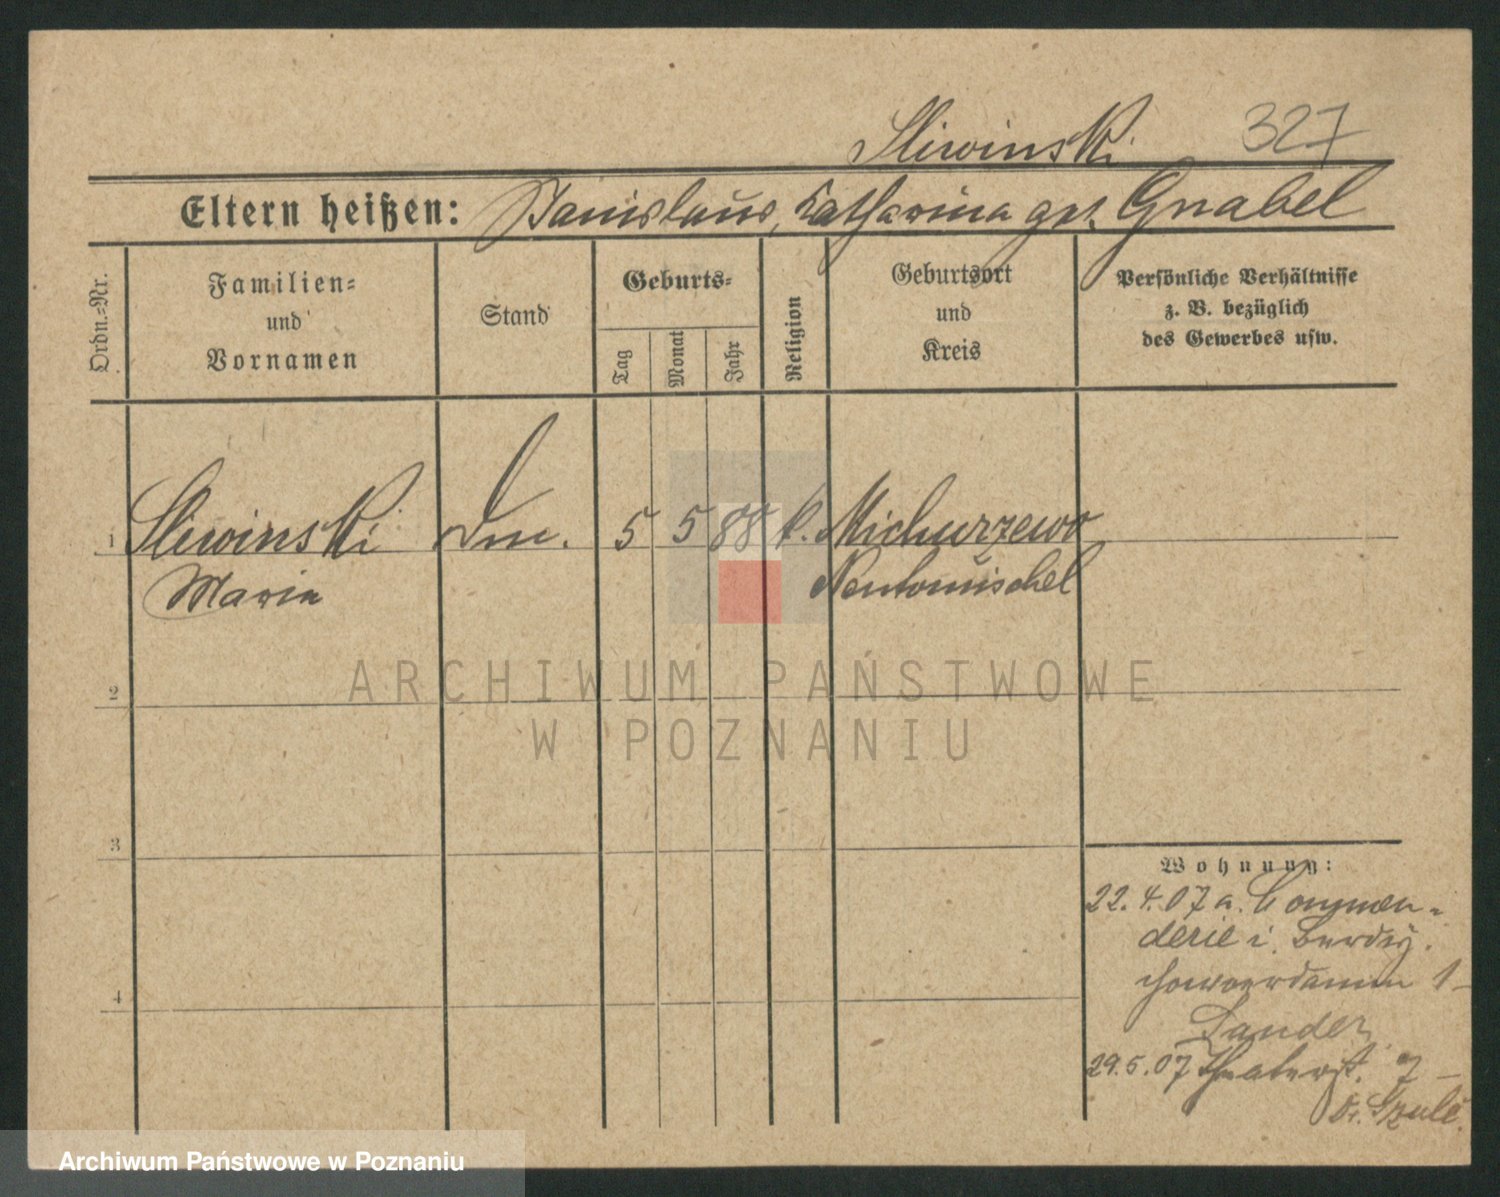 Sliwinski 327
Eltern heißen: Stanislaus, Katharina geb. Gnabel
Ordn.-Nr.
Familien-
und
Vornamen
Stand
Geburts-
Tag
Monat
Jahr
Religion
Geburtsort
und
Kreis
Persönliche Verhältnisse
z. B. bezüglich
des Gewerbes usw.
1 Sliwinski 5 5 88 k. Michurzewo
Maria Neutomischel
2
ARCHIWUM PAŃSTWOWE
W POZNANIU
3
4
Wohnung:
22.4.07 a. Commen-
derie i. Berdy-
chowoerdamm 1
Lander
29.5.07 Theaterst. 7
Dr. Szulc
Archiwum Państwowe w Poznaniu